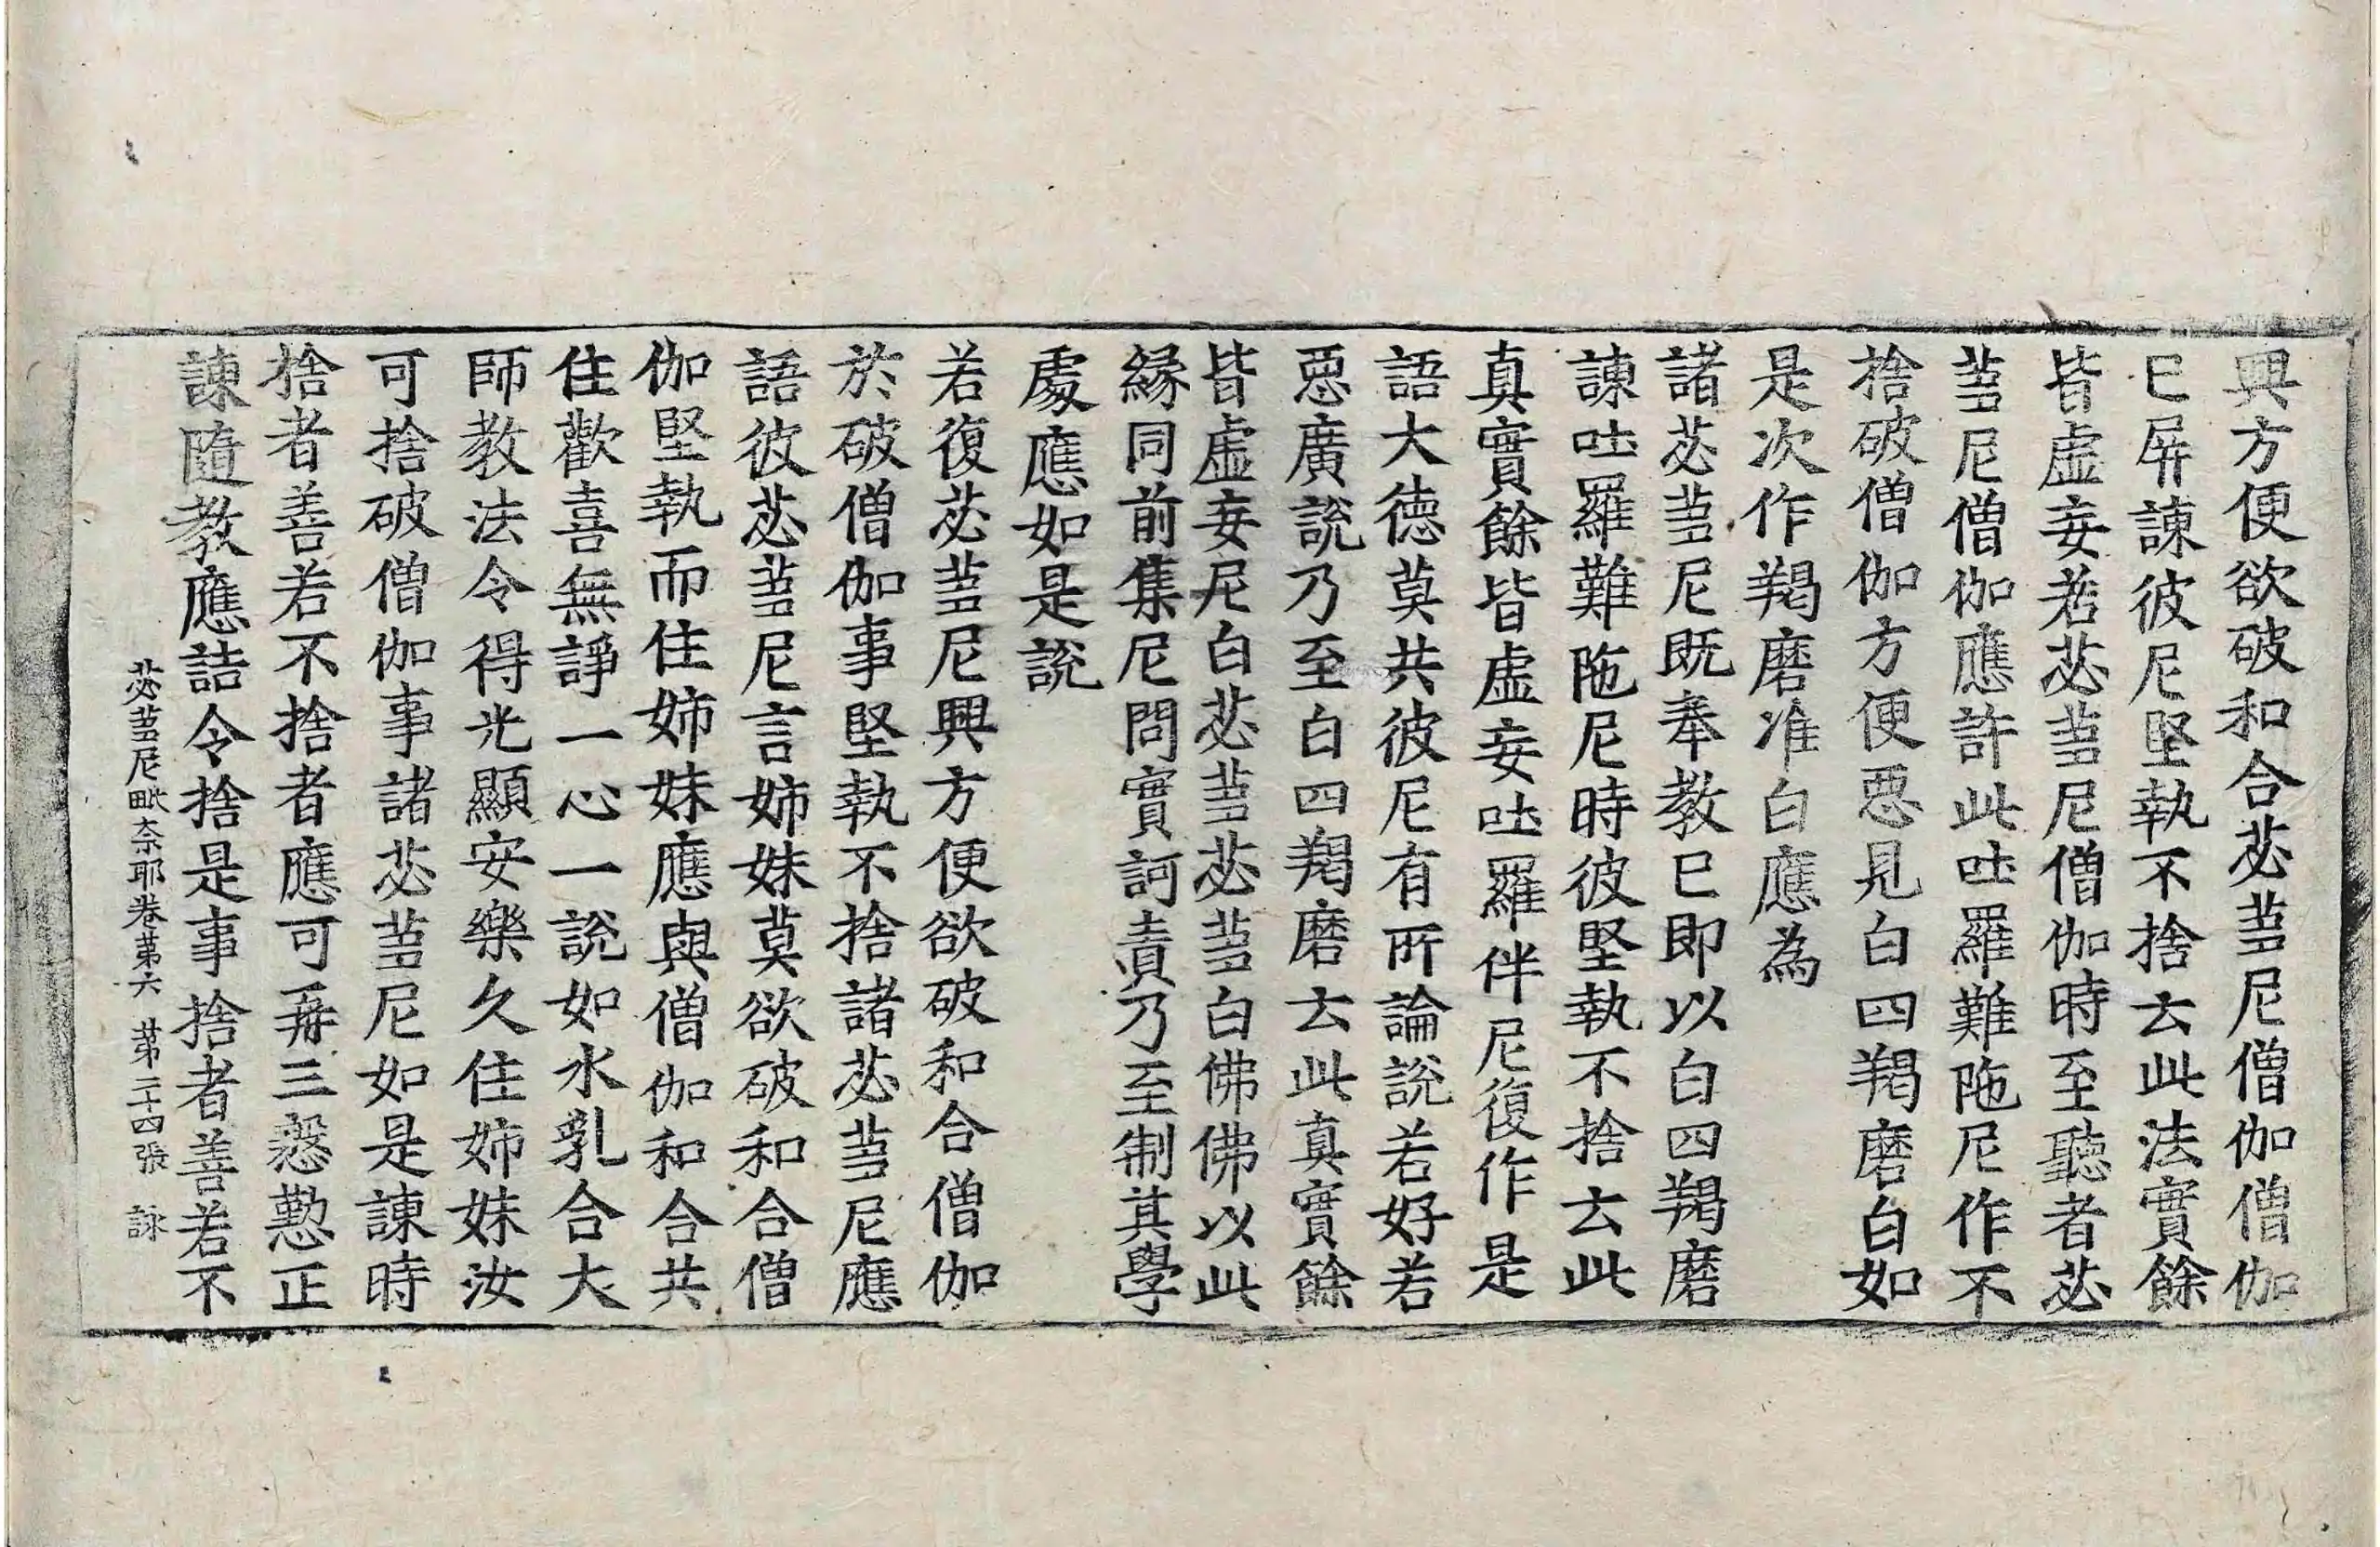 興方便欲破和合苾蒭尼僧伽僧伽
已屏諫彼尼堅執不捨云此法實餘
皆虛妄若苾蒭尼僧伽時至聽者苾
蒭尼僧伽應許此吐羅難陁尼作不
捨破僧伽方便惡見白四羯磨白如
是次作羯磨准白應為
諸苾蒭尼既奉教已即以白四羯磨
諫吐羅難陁尼時彼堅執不捨云此
真實餘皆虛妄吐羅伴尼復作是
語大德莫共彼尼有所論說若好若
惡廣說乃至白四羯磨云此真實餘
皆虛妄尼白苾蒭苾蒭白佛佛以此
緣同前集尼問實訶責乃至制其學
處應如是說
若復苾蒭尼興方便欲破和合僧伽
於破僧伽事堅執不捨諸苾蒭尼應
語彼苾蒭尼言姉妹莫欲破和合僧
伽堅執而住姉妹應與僧伽和合共
住歡喜無諍一心一說如水乳合大
師教法令得光顯安樂久住姉妹汝
可捨破僧伽事諸苾蒭尼如是諫時
捨者善若不捨者應可再三慇懃正
諫隨教應詰令捨是事捨者善若不
苾蒭尼毗奈耶卷第六 第二十四張 詠